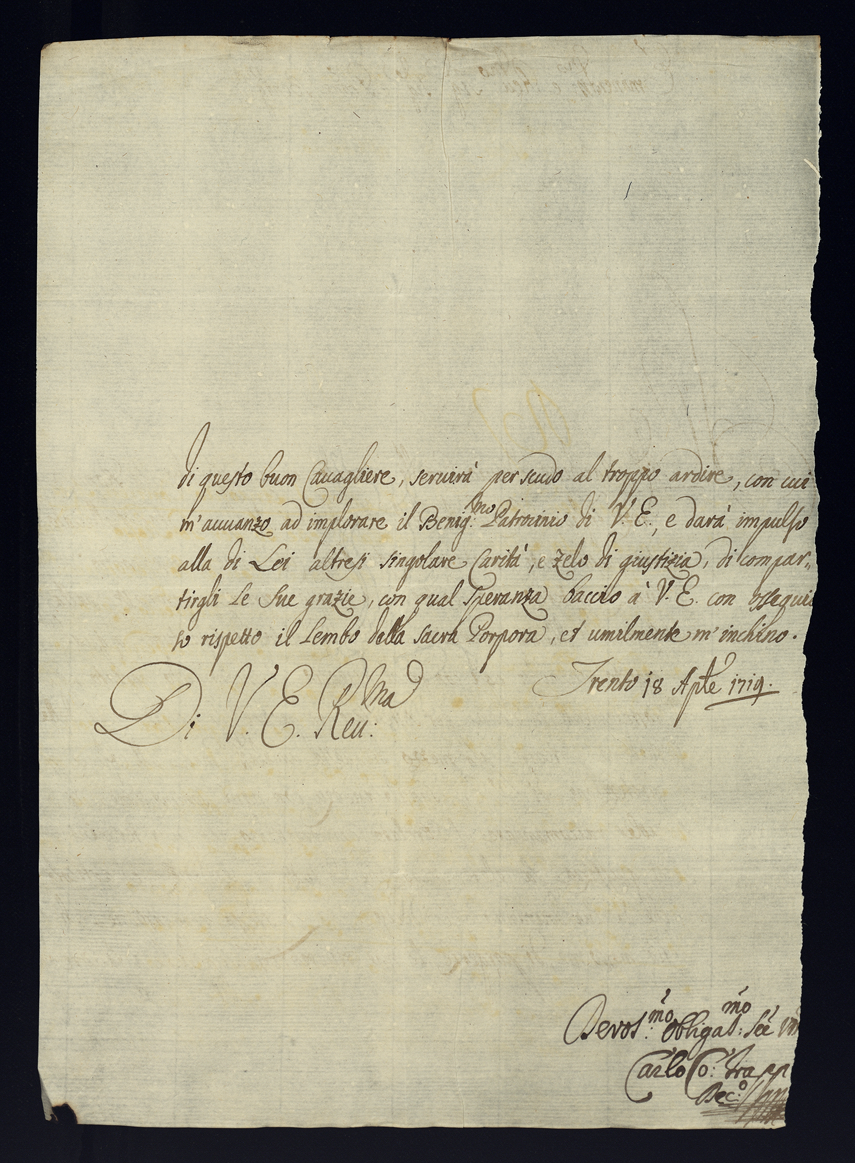 di questo buon Cavagliere, servirà per scudo al troppo ardire, con cui
m'avvanzo ad implorare il Benig:mo Patrocinio di V. E., e darà impulso
alla di Lei altresi singolare Carità, e zelo di giustizia, di compar„
tirgli le Sue grazie, con qual Speranza baccio à V. E. con ossequi
so rispetto il Lembo della Sacra Porpora, et umilmente m'inchino.
Trento 18 Aple 1719.
Di V. E. Reu:ma
Devot:mo obligat:mo
Carlo Co: Trapp
Dec:o